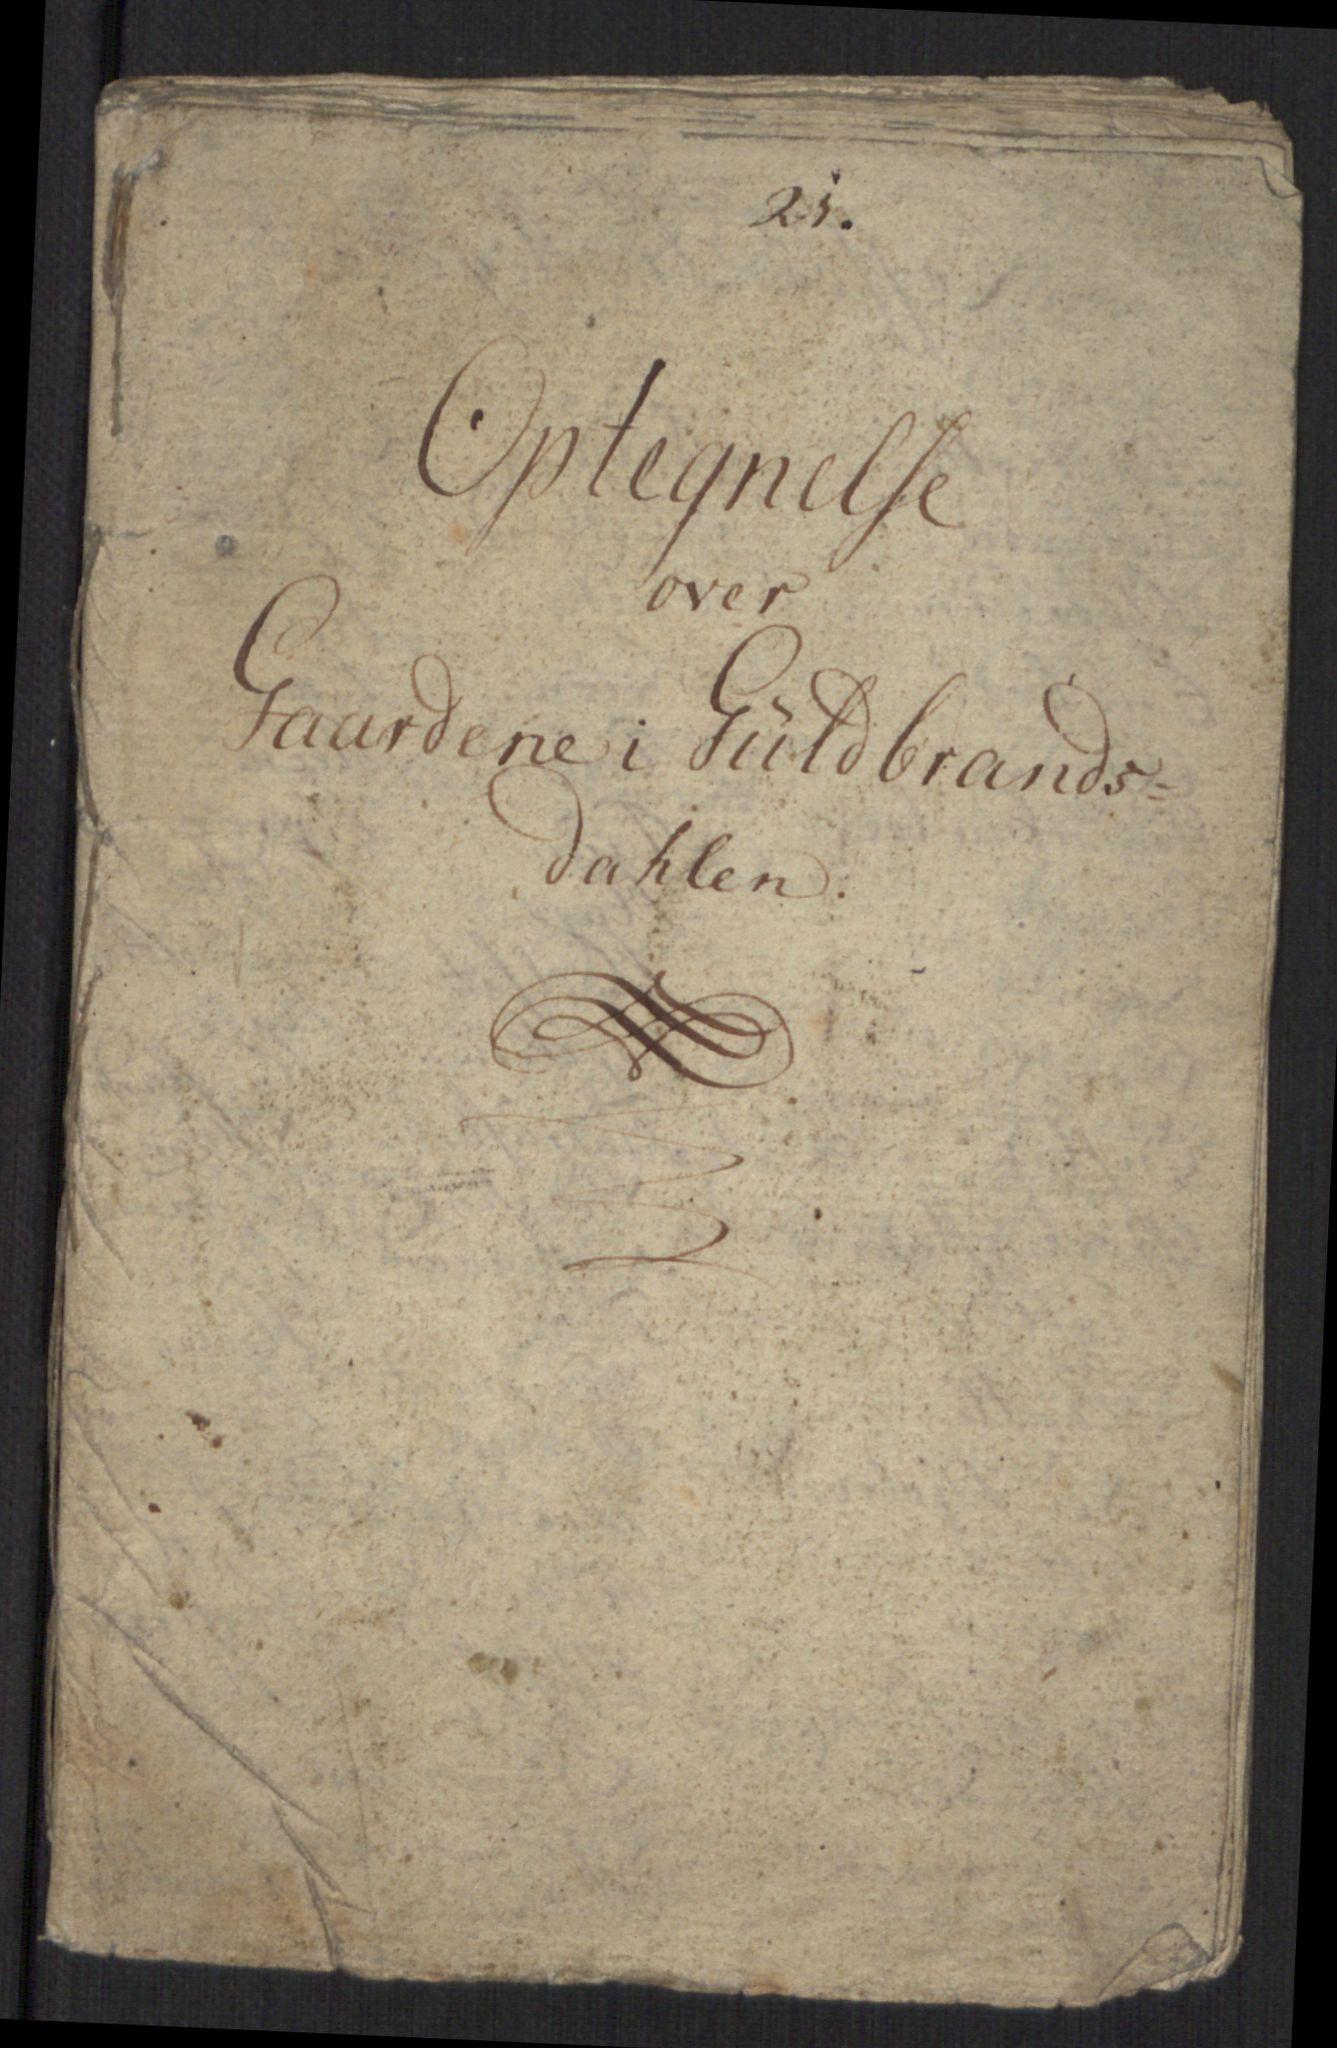 21.
Optegnelse
over
Gaardene i Güldbrands=
dahlen.